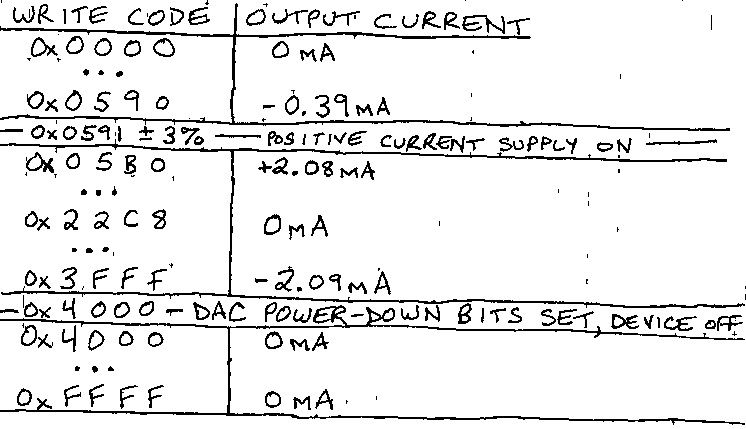 WRITE CODE OUTPUT CURRENT
0x0000 0 mA
...
0x0590 -0.39mA
0x0591 ± 3% POSITIVE CURRENT SUPPLY ON
0x05B0 +2.08mA
...
0x22C8 0mA
...
0x3FFF -2.09mA
0x4000 - DAC POWER-DOWN BITS SET, DEVICE OFF
0x4000 0mA
...
0xFFFF 0mA